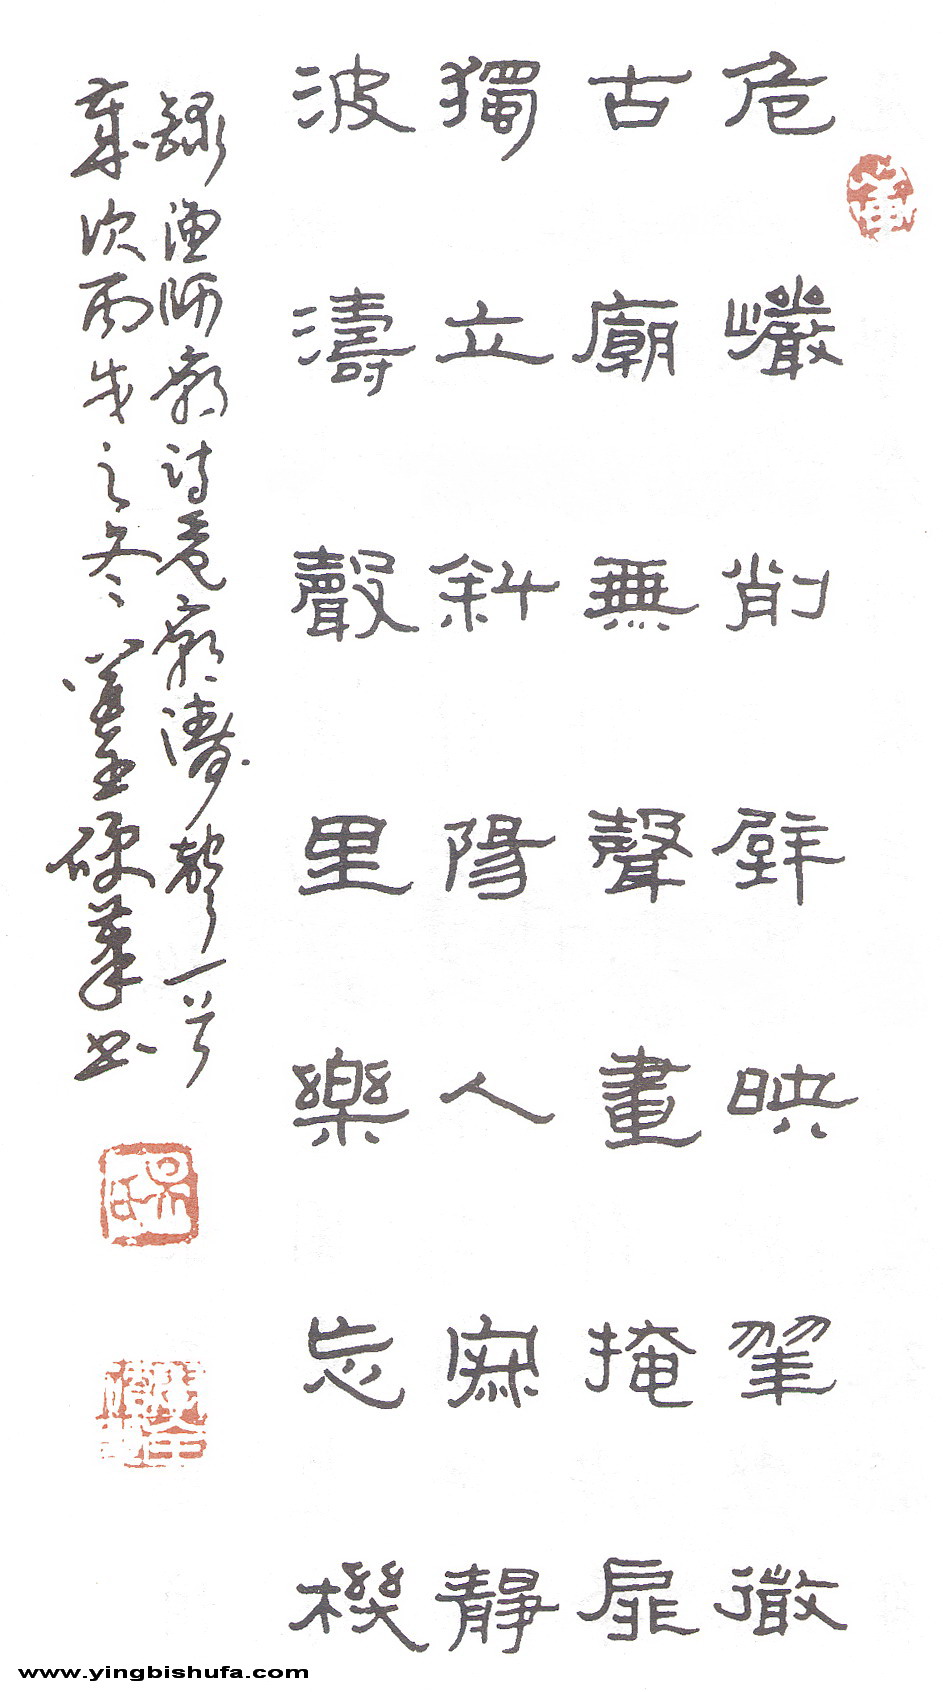 危巗削壁映翠微
古廟無聲晝掩扉
獨立斜陽人寂靜
波濤聲里樂忘機
錄漁師廟詩廟濤聲一首
歲次丙戌之冬硬筆書
www.yingbishufa.com